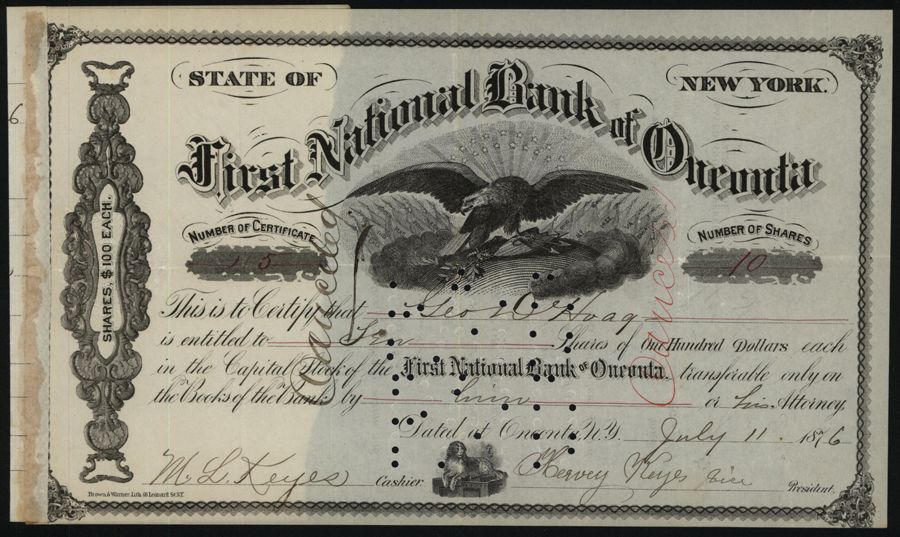 STATE OF
NEW YORK.
First National Bank of Oneonta
NUMBER OF CERTIFICATE
NUMBER OF SHARES
15
10
SHARES, $100 EACH.
Canceled
Canceled
This is to Certify that Geo W Hoag
is entitled to Ten Shares of One Hundred Dollars each
in the Capital Stock of the First National Bank of Oneonta. transferable only on
the Books of the Bank by him or his Attorney.
Dated at Oneonta, N.Y. July 11 1876
M. L. Keyes Cashier. Hervey Keyes vice President.
Brown & Warner Lith. 68 Leonard St. N.Y.
6